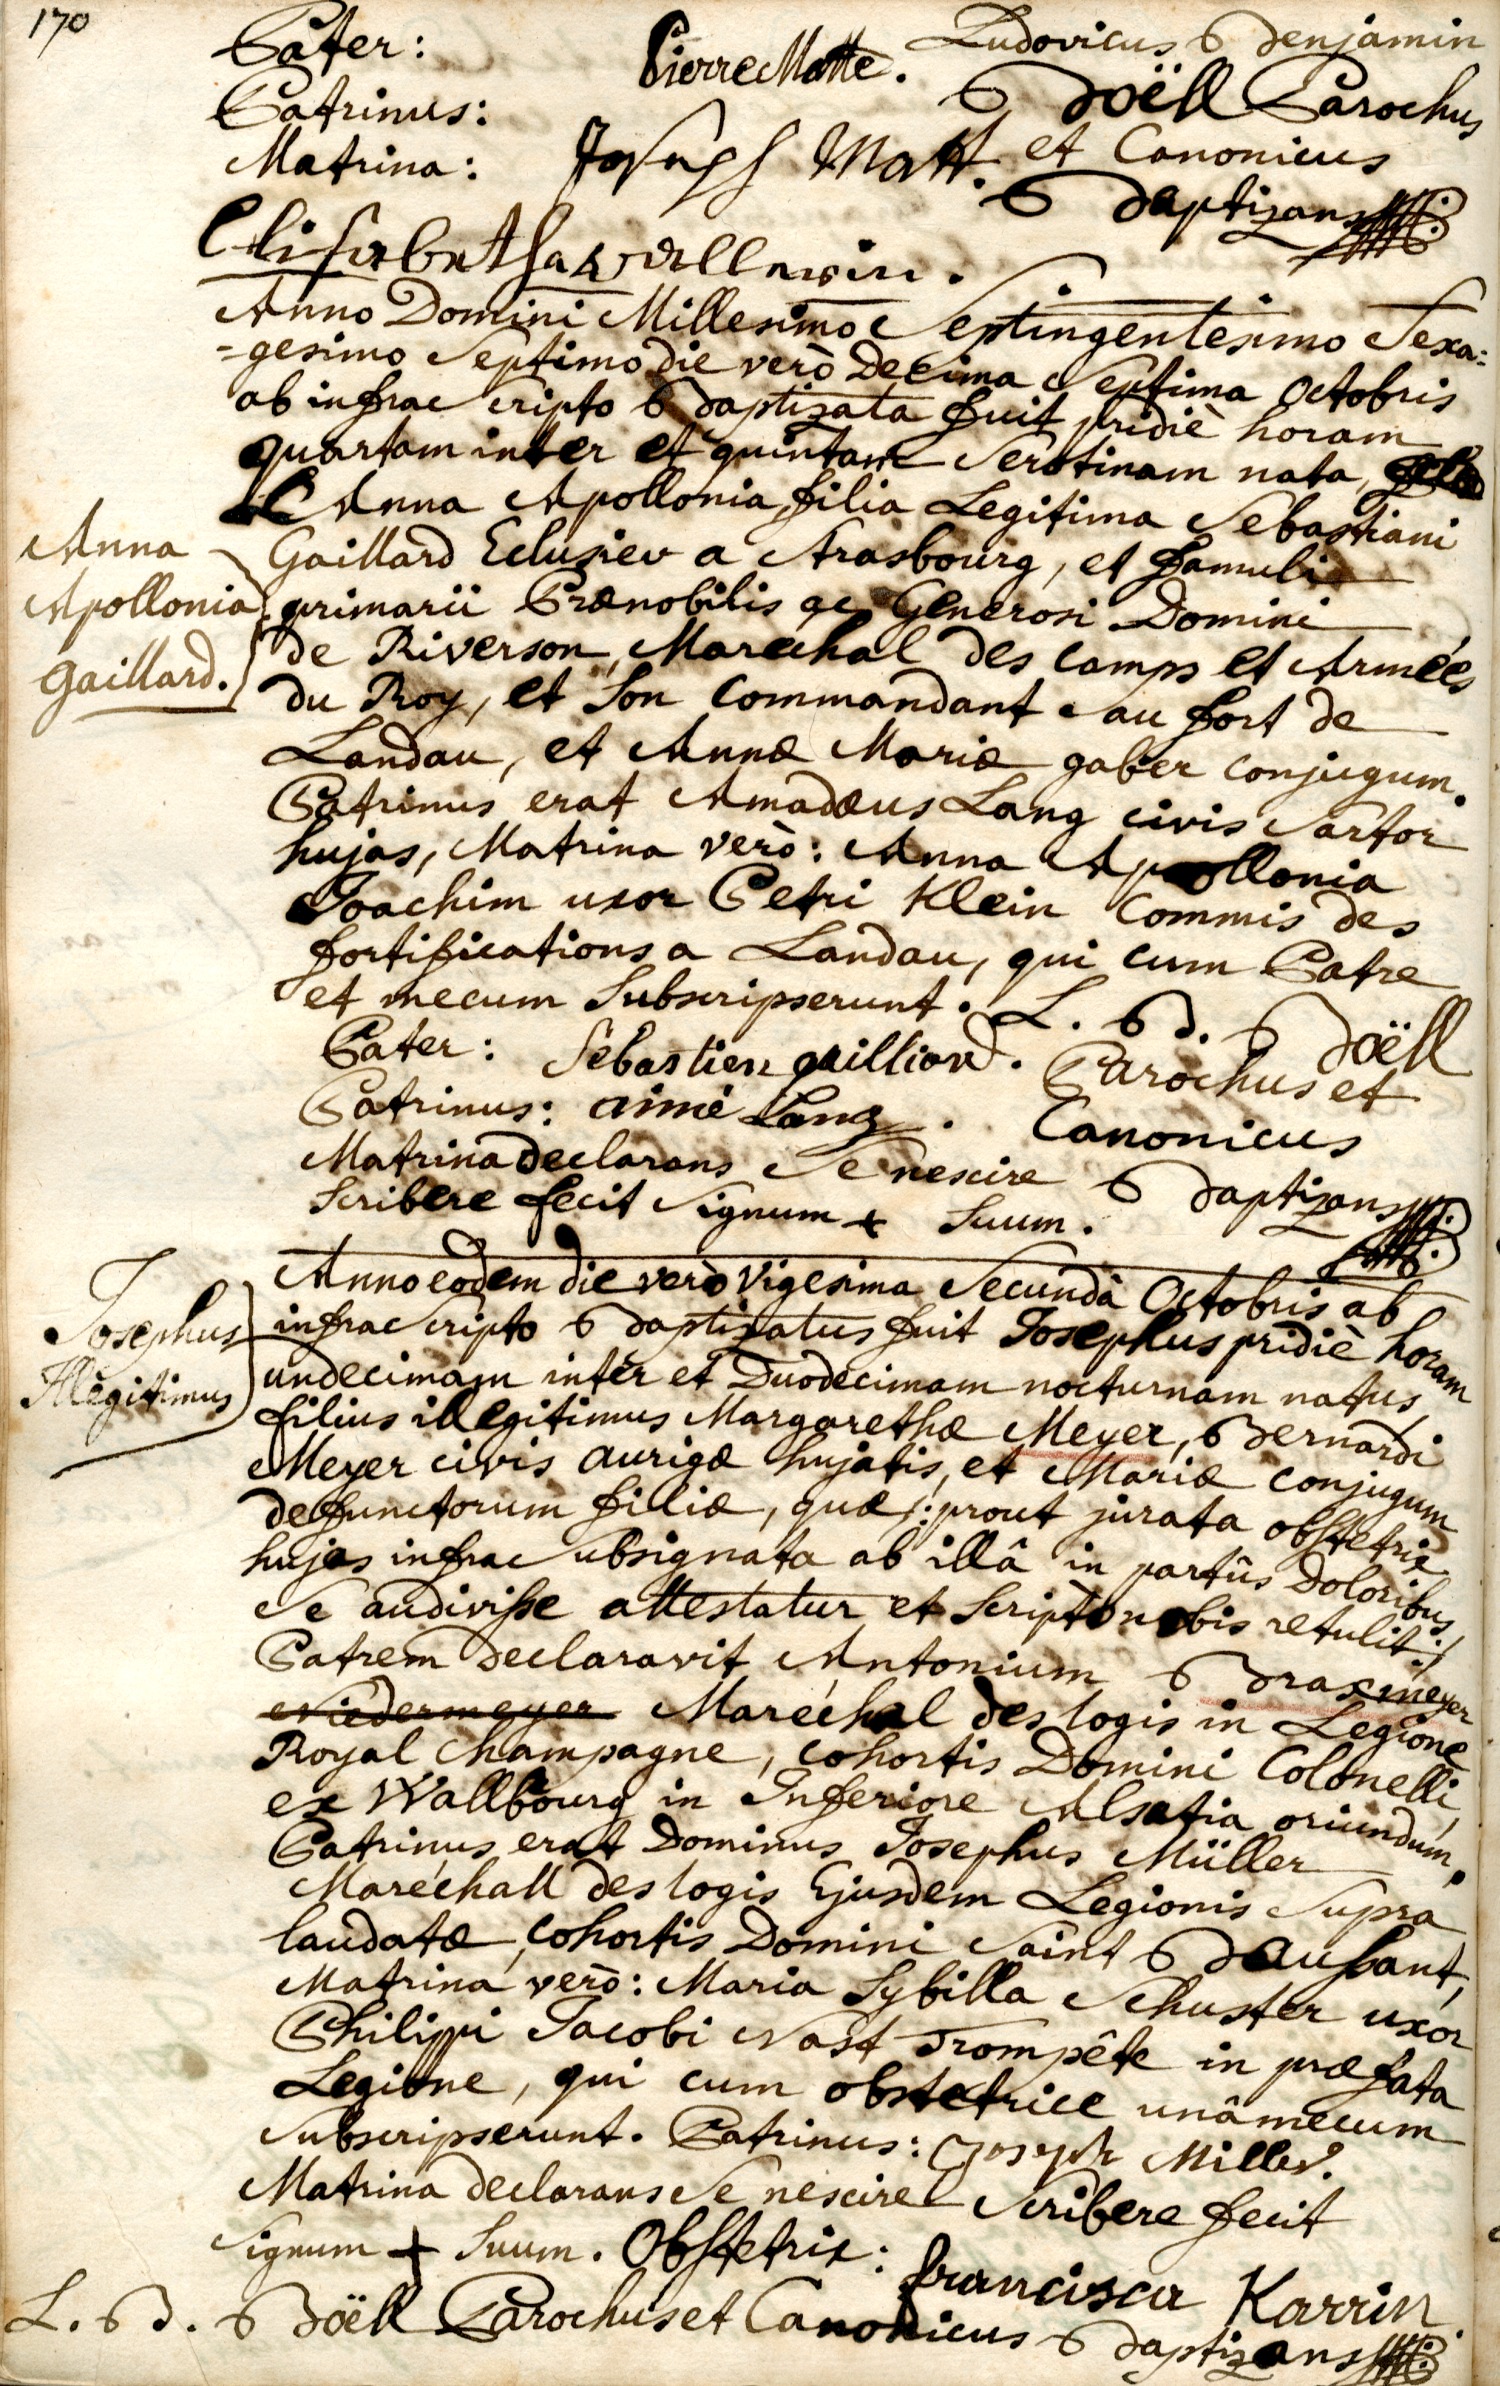 170
Pater: Pierre Matte. Ludovicus Benjamin
Patrinus: Boëll Parochus
Matrina: Joseph Matt. et Canonicus
Baptizans
Elisabetha
Anno Domini Millesimo Septingentesimo Sexa=
=gesimo Septimo die verò Decima Septima Octobris
ab infrascripto Baptizata fuit pridiè horam
quartam inter et quintam Serotinam nata,
Anna Apollonia filia Legitima Sebastiani
Gaillard Eclusier a Strasbourg, et famuli
primarii Prænobilis ac Generosi Domini
de Riverson, Marechal des camps et Armées
du Roy, et Son Commandant au fort de
Landau, et Annæ Mariæ gaber conjugum.
Patrinus erat Amadæus Lang civis Sartor
hujas, Matrina verò: Anna Apollonia
Joachim uxor Petri Klein Commis des
fortifications a Landau, qui cum Patre
et mecum Subscripserunt. L. B. Boëll
Pater: Sebastien gailliard. Parochus et
Patrinus: aimé Lang. Canonicus
Matrina declarans Se nescire Baptizans
Scribere fecit Signum + Suum.
Anna
Apollonia
gaillard.
Anno eodem die verò Vigesima Secundâ Octobris ab
infrascripto Baptizatus fuit Josephus pridiè horam
undecimam inter et Duodecimam nocturnam natus
filius illegitimus Margarethæ Meyer, Bernardi
Meyer civis aurigæ hujatis, et Mariæ conjugum
defunctorum filiæ, quæ /: prout jurata obstetrix
hujas infra Subsignata ab illâ in partûs Doloribus
Se audivisse attestatur et Scriptò nobis retulit :/
Patrem declaravit Antonium Braxmeyer
Niedermeyer Maréchal des logis in Legione
Royal Champagne, cohortis Domini Colonelli,
ex Wallbourg in Inferiore Alsatia oriundum.
Patrinus erat Dominus Josephus Müller
Maréchall des logis Ejusdem Legionis Supra
laudatæ, cohortis Domini Saint
Matrina verò: Maria Sybilla Schuster uxor
Philippi Jacobi Nast Trompête in præfata
Legione, qui cum obstetrice unâ mecum
Subscripserunt. Patrinus: Joseph Miller.
Matrina declarans Se nescire Scribere fecit
Signum + Suum. Obstetrix: francisca Karrin.
L. B. Boëll Parochus et Canonicus Baptizans
Josephus
Illegitimus